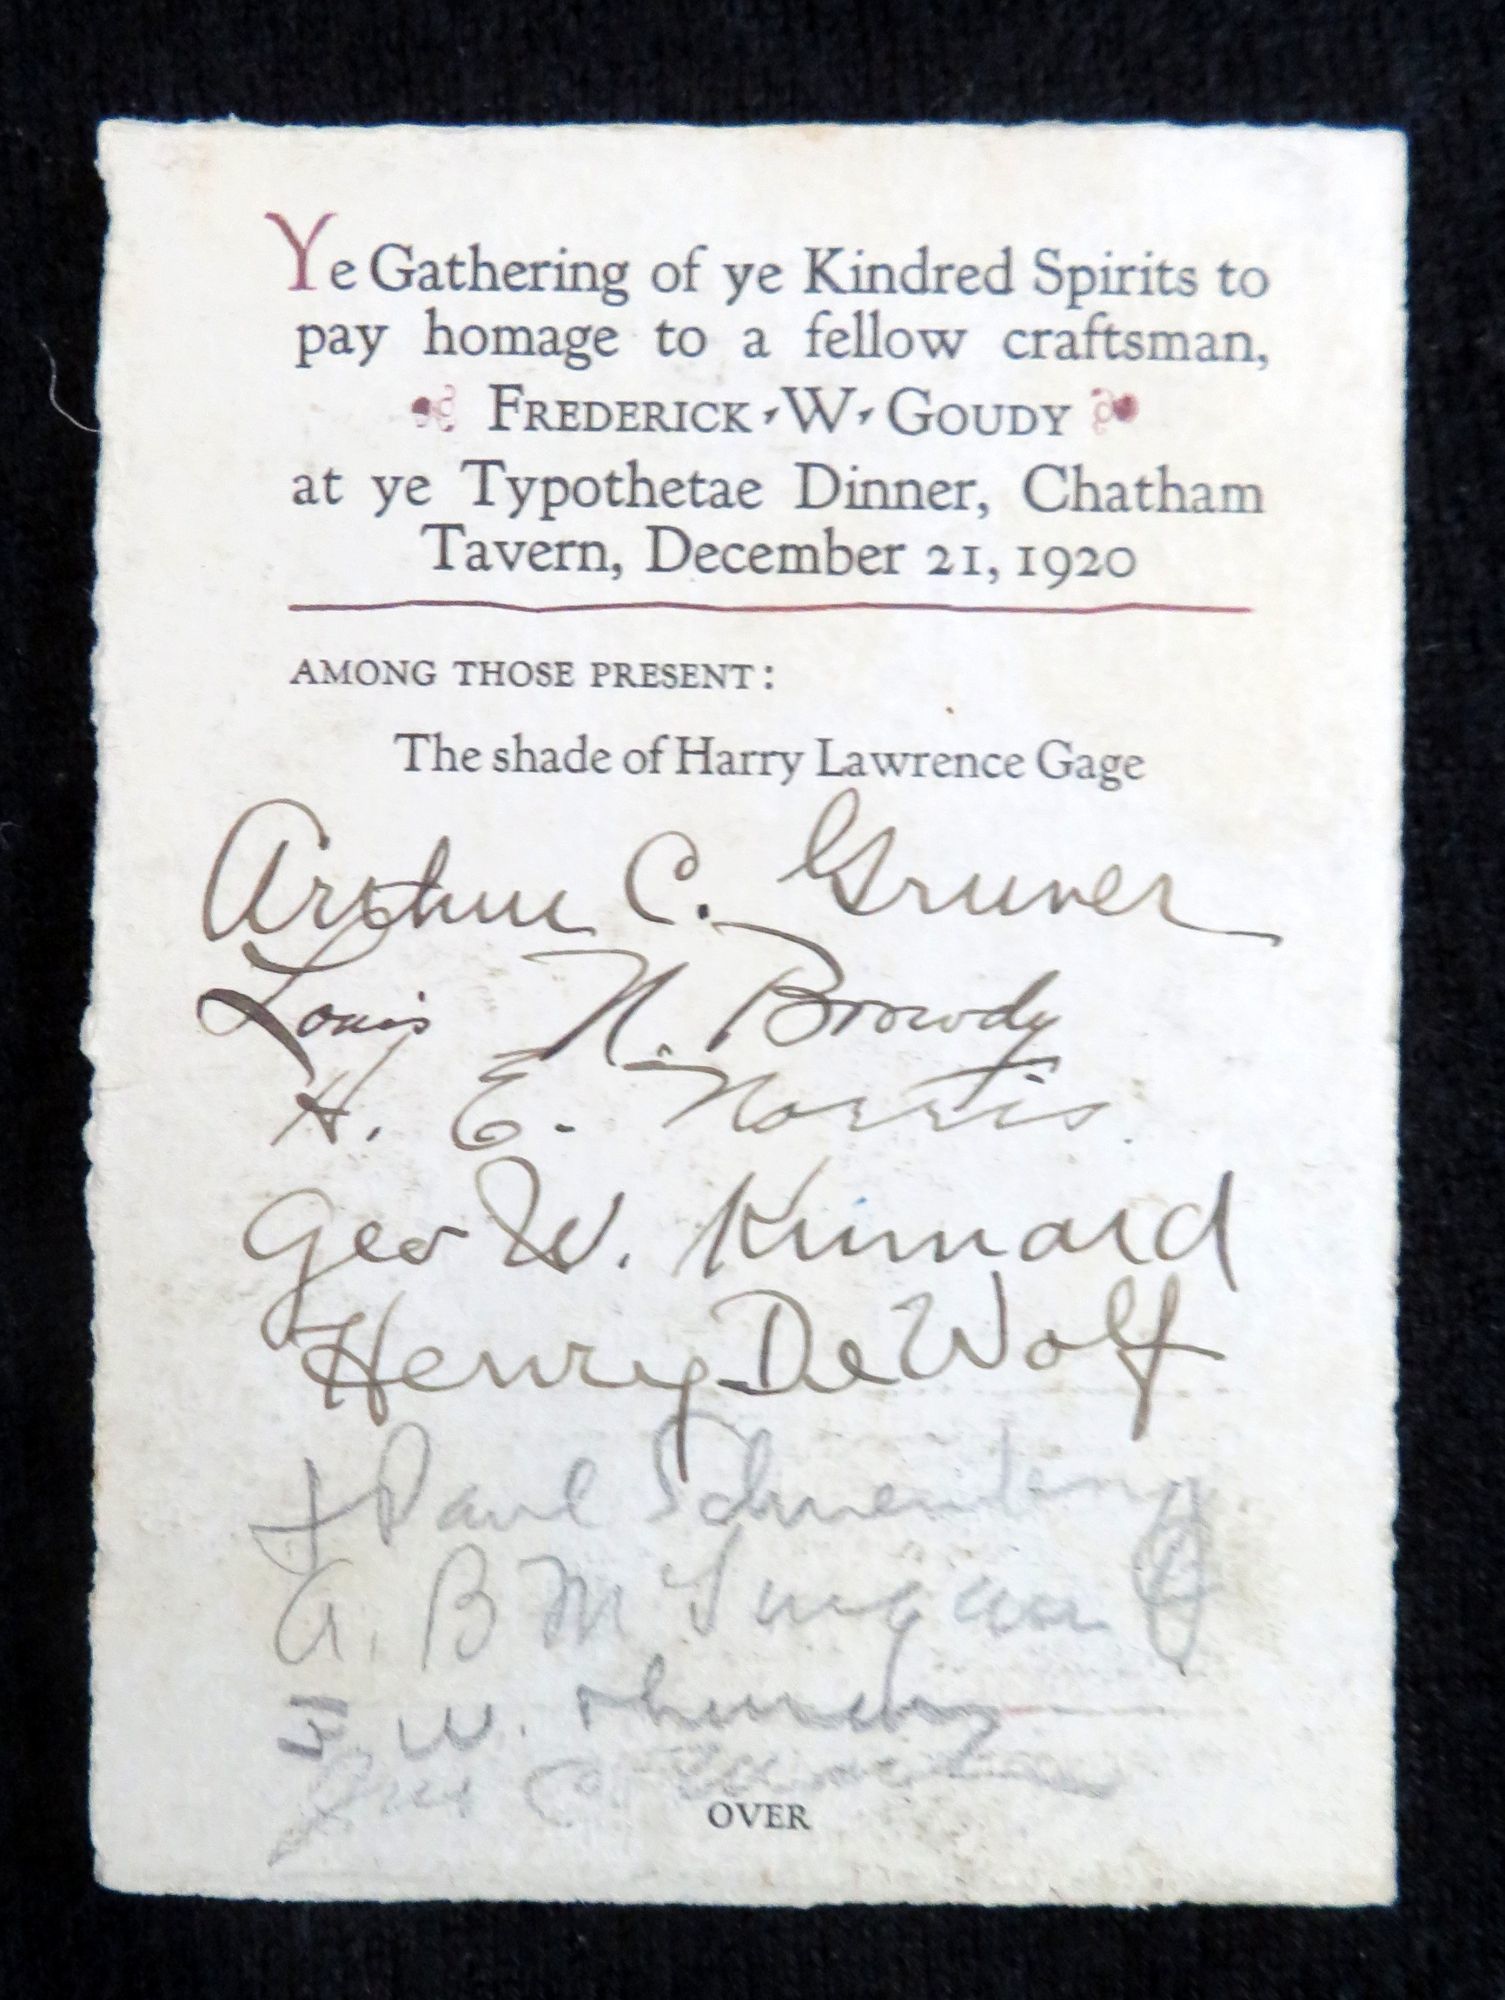 Ye Gathering of ye Kindred Spirits to
pay homage to a fellow craftsman,
FREDERICK W GOUDY
at ye Typothetae Dinner, Chatham
Tavern, December 21, 1920
AMONG THOSE PRESENT:
The shade of Harry Lawrence Gage
Arthur C. Gruver
Louis N. Browdy
H. E. Norris
Geo W. Kinnard
Henry DeWolf
Paul
A. B M
W.
OVER